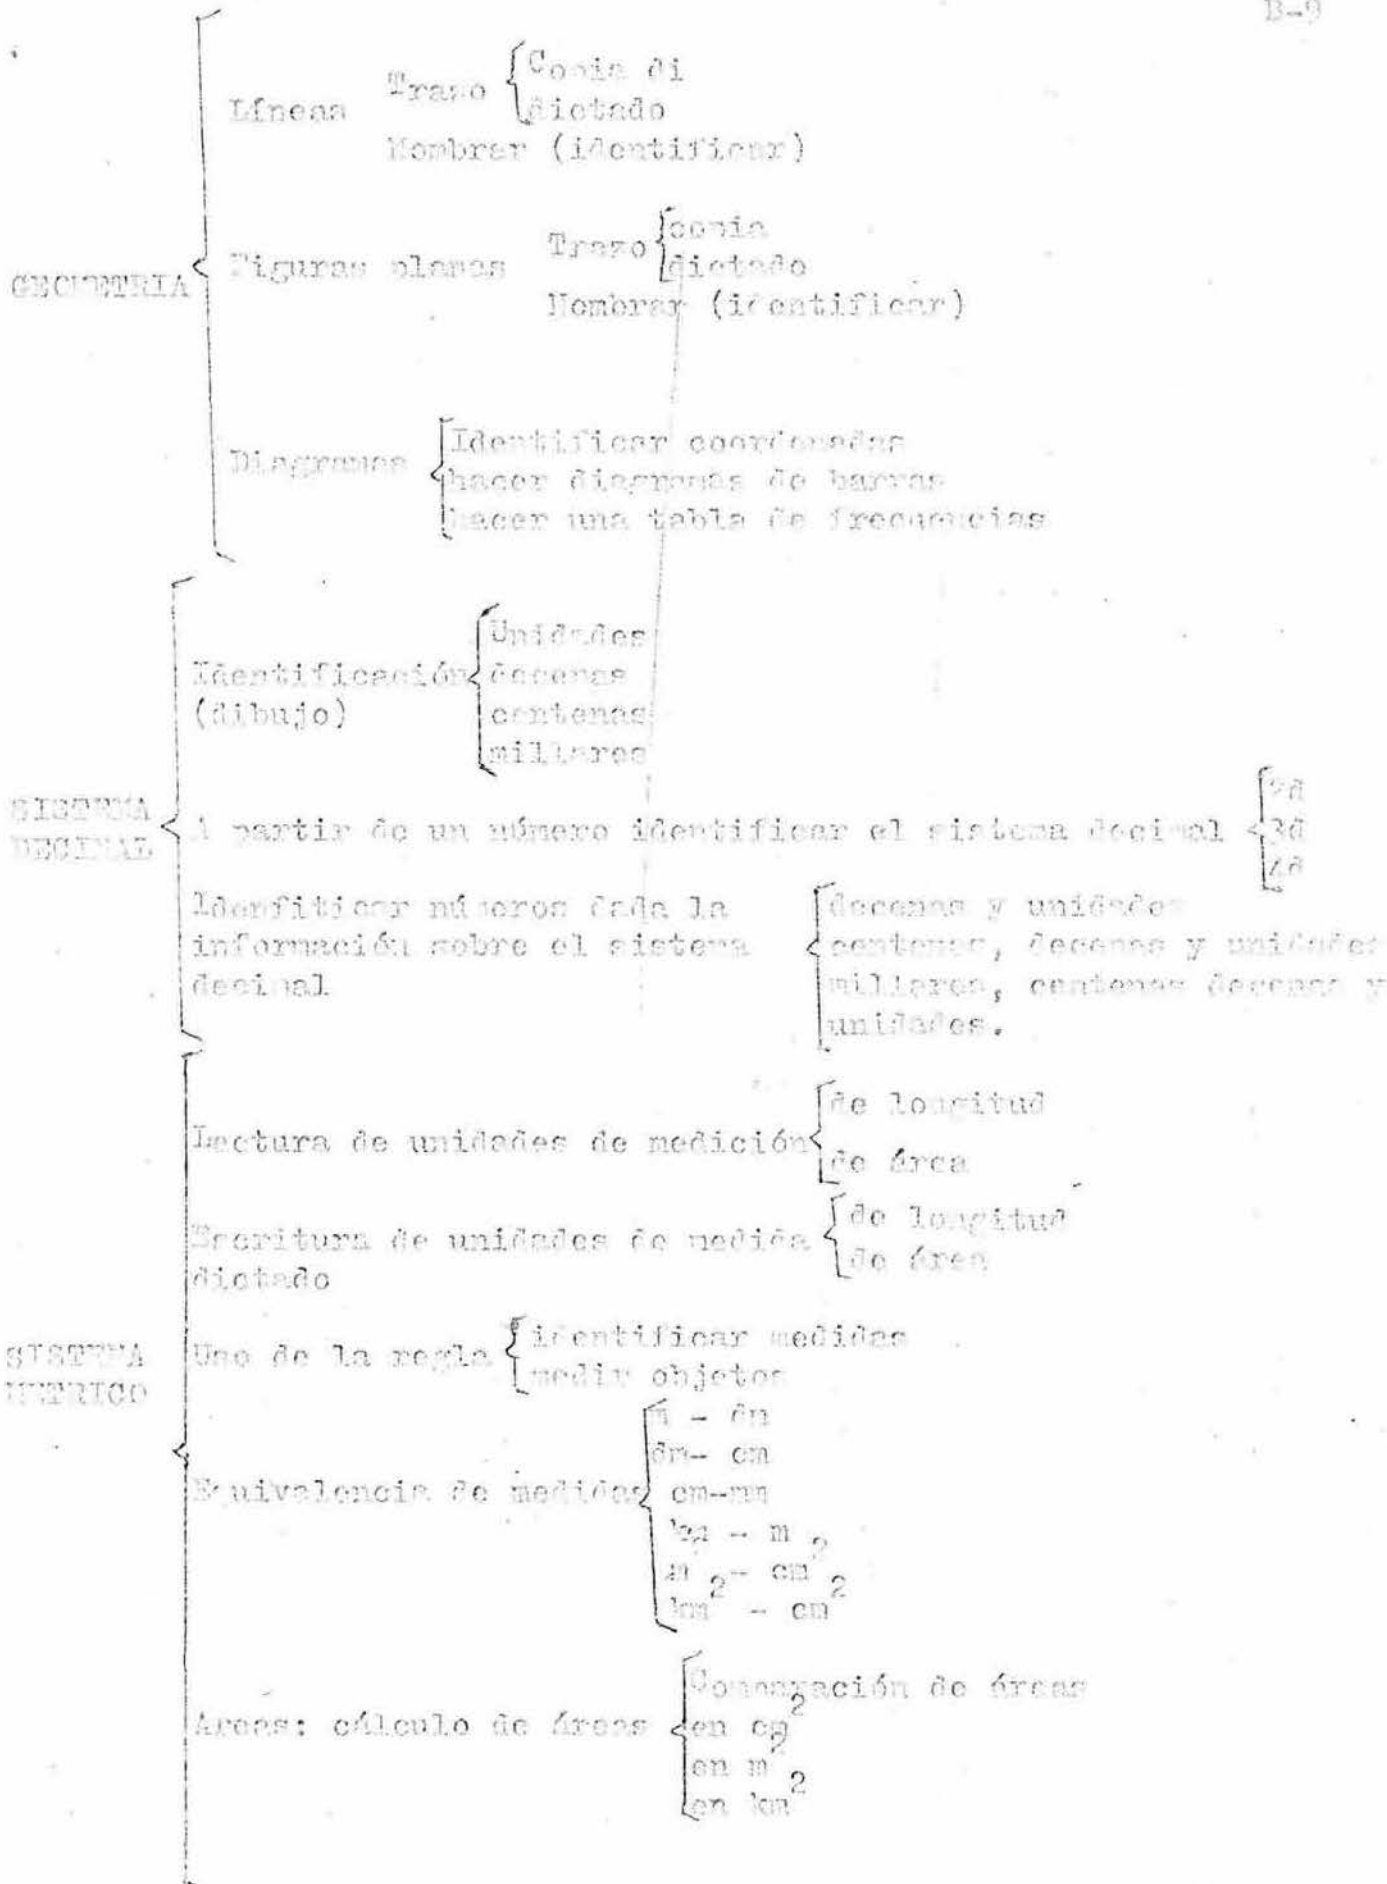 B-9
GEOMETRIA
Líneas
Trazo
Copia di
dictado
Nombrar (identificar)
Figuras planas
Trazo
copia
dictado
Nombrar (identificar)
Diagramas
Identificar coordenadas
hacer diagramas de barras
hacer una tabla de frecuencias
SISTEMA
DECIMAL
Identificación
(dibujo)
Unidades
decenas
centenas
millares
A partir de un número identificar el sistema decimal
2d
3d
4d
Idenfiticar números dada la
información sobre el sistema
decimal
decenas y unidades
centenas, decenas y unidades
millares, centenas decenas y
unidades.
SISTEMA
METRICO
Lectura de unidades de medición
de longitud
de área
Escritura de unidades de medida
dictado
de longitud
de área
Uso de la regla
identificar medidas
medir objetos
Equivalencia de medidas
m - dm
dm- cm
cm-mm
km - m
m² - cm²
km² - cm²
Areas: cálculo de áreas
Comparación de áreas
en cm²
en m²
en km²